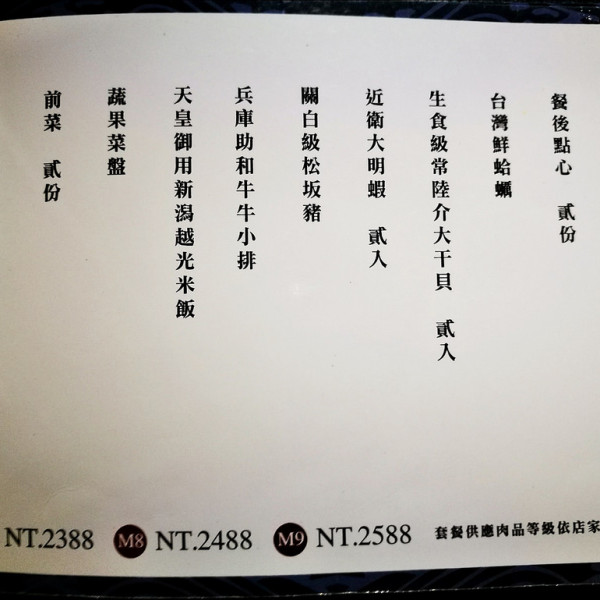 前菜 貳份
蔬果菜盤
天皇御用新潟越光米飯
兵庫助和牛牛小排
關白級松坂豬
近衛大明蝦 貳入
生食級常陸介大干貝 貳入
台灣鮮蛤蠣
餐後點心 貳份
NT.2388 M8 NT.2488 M9 NT.2588 套餐供應肉品等級依店家